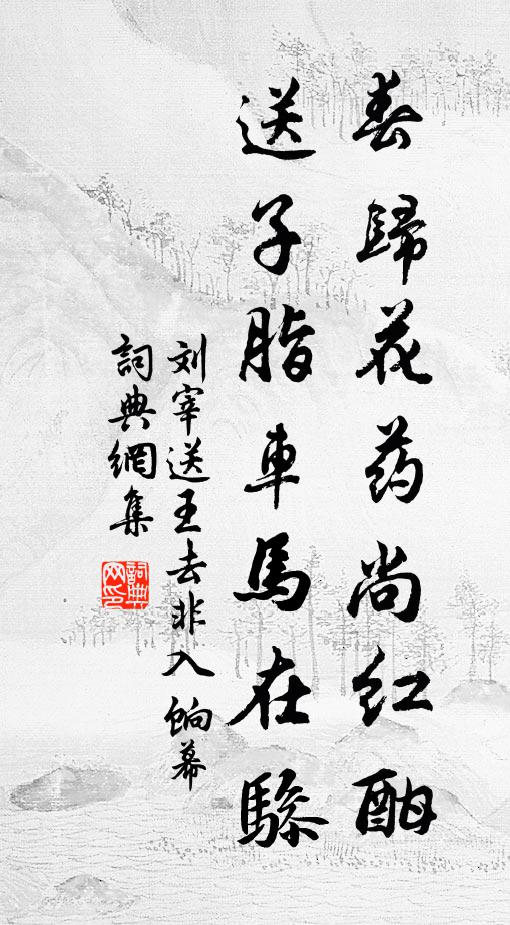 春歸花药尚红酣
送子脂車馬在驂
刘宰送王去非入餉幕
詞典網集
詞典
网印